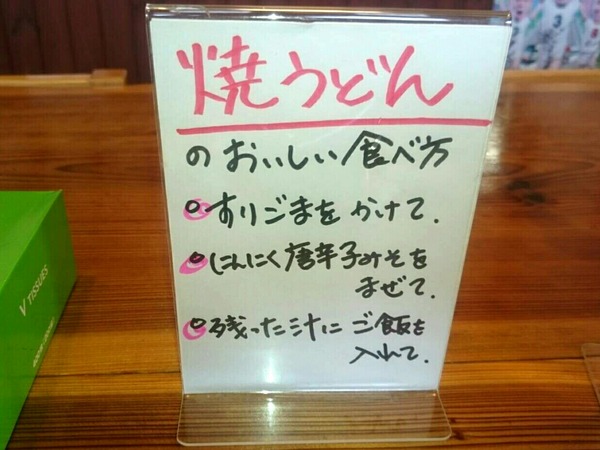 焼うどん
のおいしい食べ方
○すりごまをかけて.
○にんにく唐辛子みそを
まぜて.
○残った汁にご飯を
入れて.
V TISSUES
3